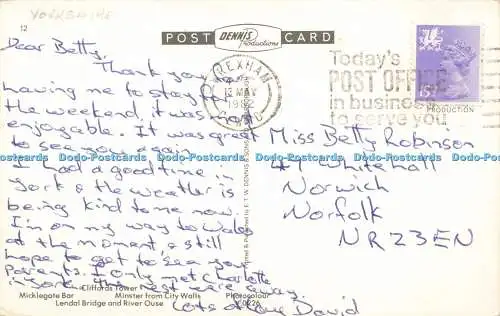 YORKSHIRE
12
POST DENNIS Productions CARD
Dear Betty,
Thank you for
having me to stay for
the weekend, it was most
enjoyable. It was great
to see you again.
I had a good time in
York & the weather is
being kind to me now.
I'm on my way to Wales
at the moment & still
hope to get to see your
Parents. I only met Charlotte
in York the rest were away.
Lots of love David
WREXHAM
12 MAY
Today's
POST OFFICE
in business
to serve you
PRODUCTION
Miss Betty Robinson
47 Whitehall
Norwich
Norfolk
NR2 3EN
Dodo-Postcards Dodo-Postcards Dodo-Postcards Dodo-Postcards Dodo-Postcards Dodo-Postcards Dodo-Postcards
Printed & Published by E. T. W. DENNIS & SONS
Clifford's Tower
Micklegate Bar Minster from City Walls Photocolour
Lendal Bridge and River Ouse Y.0226